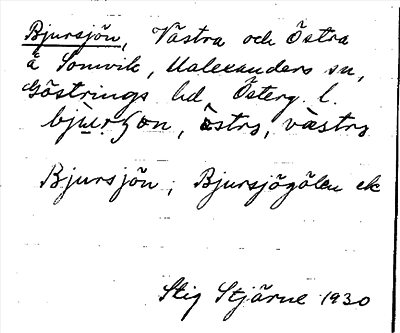 Bjursjön, Västra och Östra
å Somvik, Malexanders sn,
Göstrings hd, Österg. l.
bjurʃon, ästrs, västrs
Bjursjön; Bjursjögölen ek
Stig Stjärne 1930